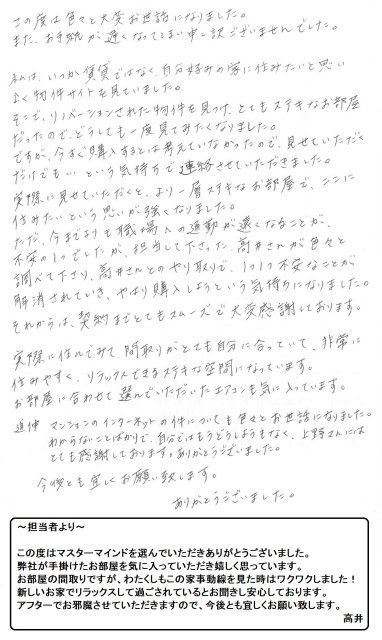 この度は色々と大変お世話になりました。
また、お手紙が遅くなってしまい申し訳ございませんでした。
私は、いつか賃貸ではなく、自分好みの家に住みたいと思い
よく物件サイトを見ていました。
そこで、リノベーションされた物件を見つけ、とてもステキなお部屋
だったので、どうしても一度見てみたくなりました。
ですが、今すぐ購入するとは考えていなかったので、見せていただく
だけでもいいという気持ちで連絡させていただきました。
実際に見せていただくと、より一層ステキなお部屋で、ここに
住みたいという思いが強くなりました。
ただ、今までよりも職場への通勤が遠くなることが、
不安の1つでしたが、担当して下さった高井さんが色々と
調べて下さり、高井さんとのやり取りで、1つ1つ不安なことが
解消されていき、やはり購入しようという気持ちになりました。
それからは、契約までとてもスムーズで大変感謝しております。
実際に住んでみて、間取りがとても自分に合っていて、非常に
住みやすく、リラックスできるステキな空間になっています。
お部屋に合わせて選んでいただいたエアコンも気に入っています。
追伸 マンションのインターネットの件についても色々とお世話になりました。
わからないことばかりで、自分ではもうどうしようもなく、上野さんには
とても感謝しております。ありがとうございました。
今後とも宜しくお願い致します。
ありがとうございました。
～担当者より～
この度はマスターマインドを選んでいただきありがとうございました。
弊社が手掛けたお部屋を気に入っていただき嬉しく思っています。
お部屋の間取りですが、わたくしもこの家事動線を見た時はワクワクしました！
新しいお家でリラックスして過ごされているとお聞きし安心しております。
アフターでお邪魔させていただきますので、今後とも宜しくお願い致します。
高井